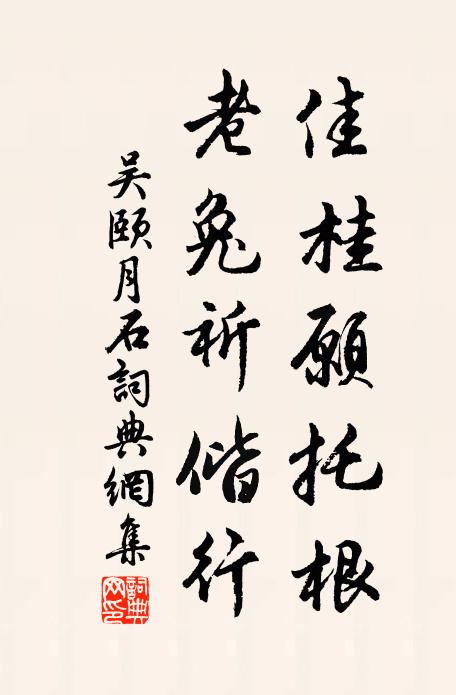 佳桂願托根
老兔祈偕行
吳頤月石詞典網集
詞典網印